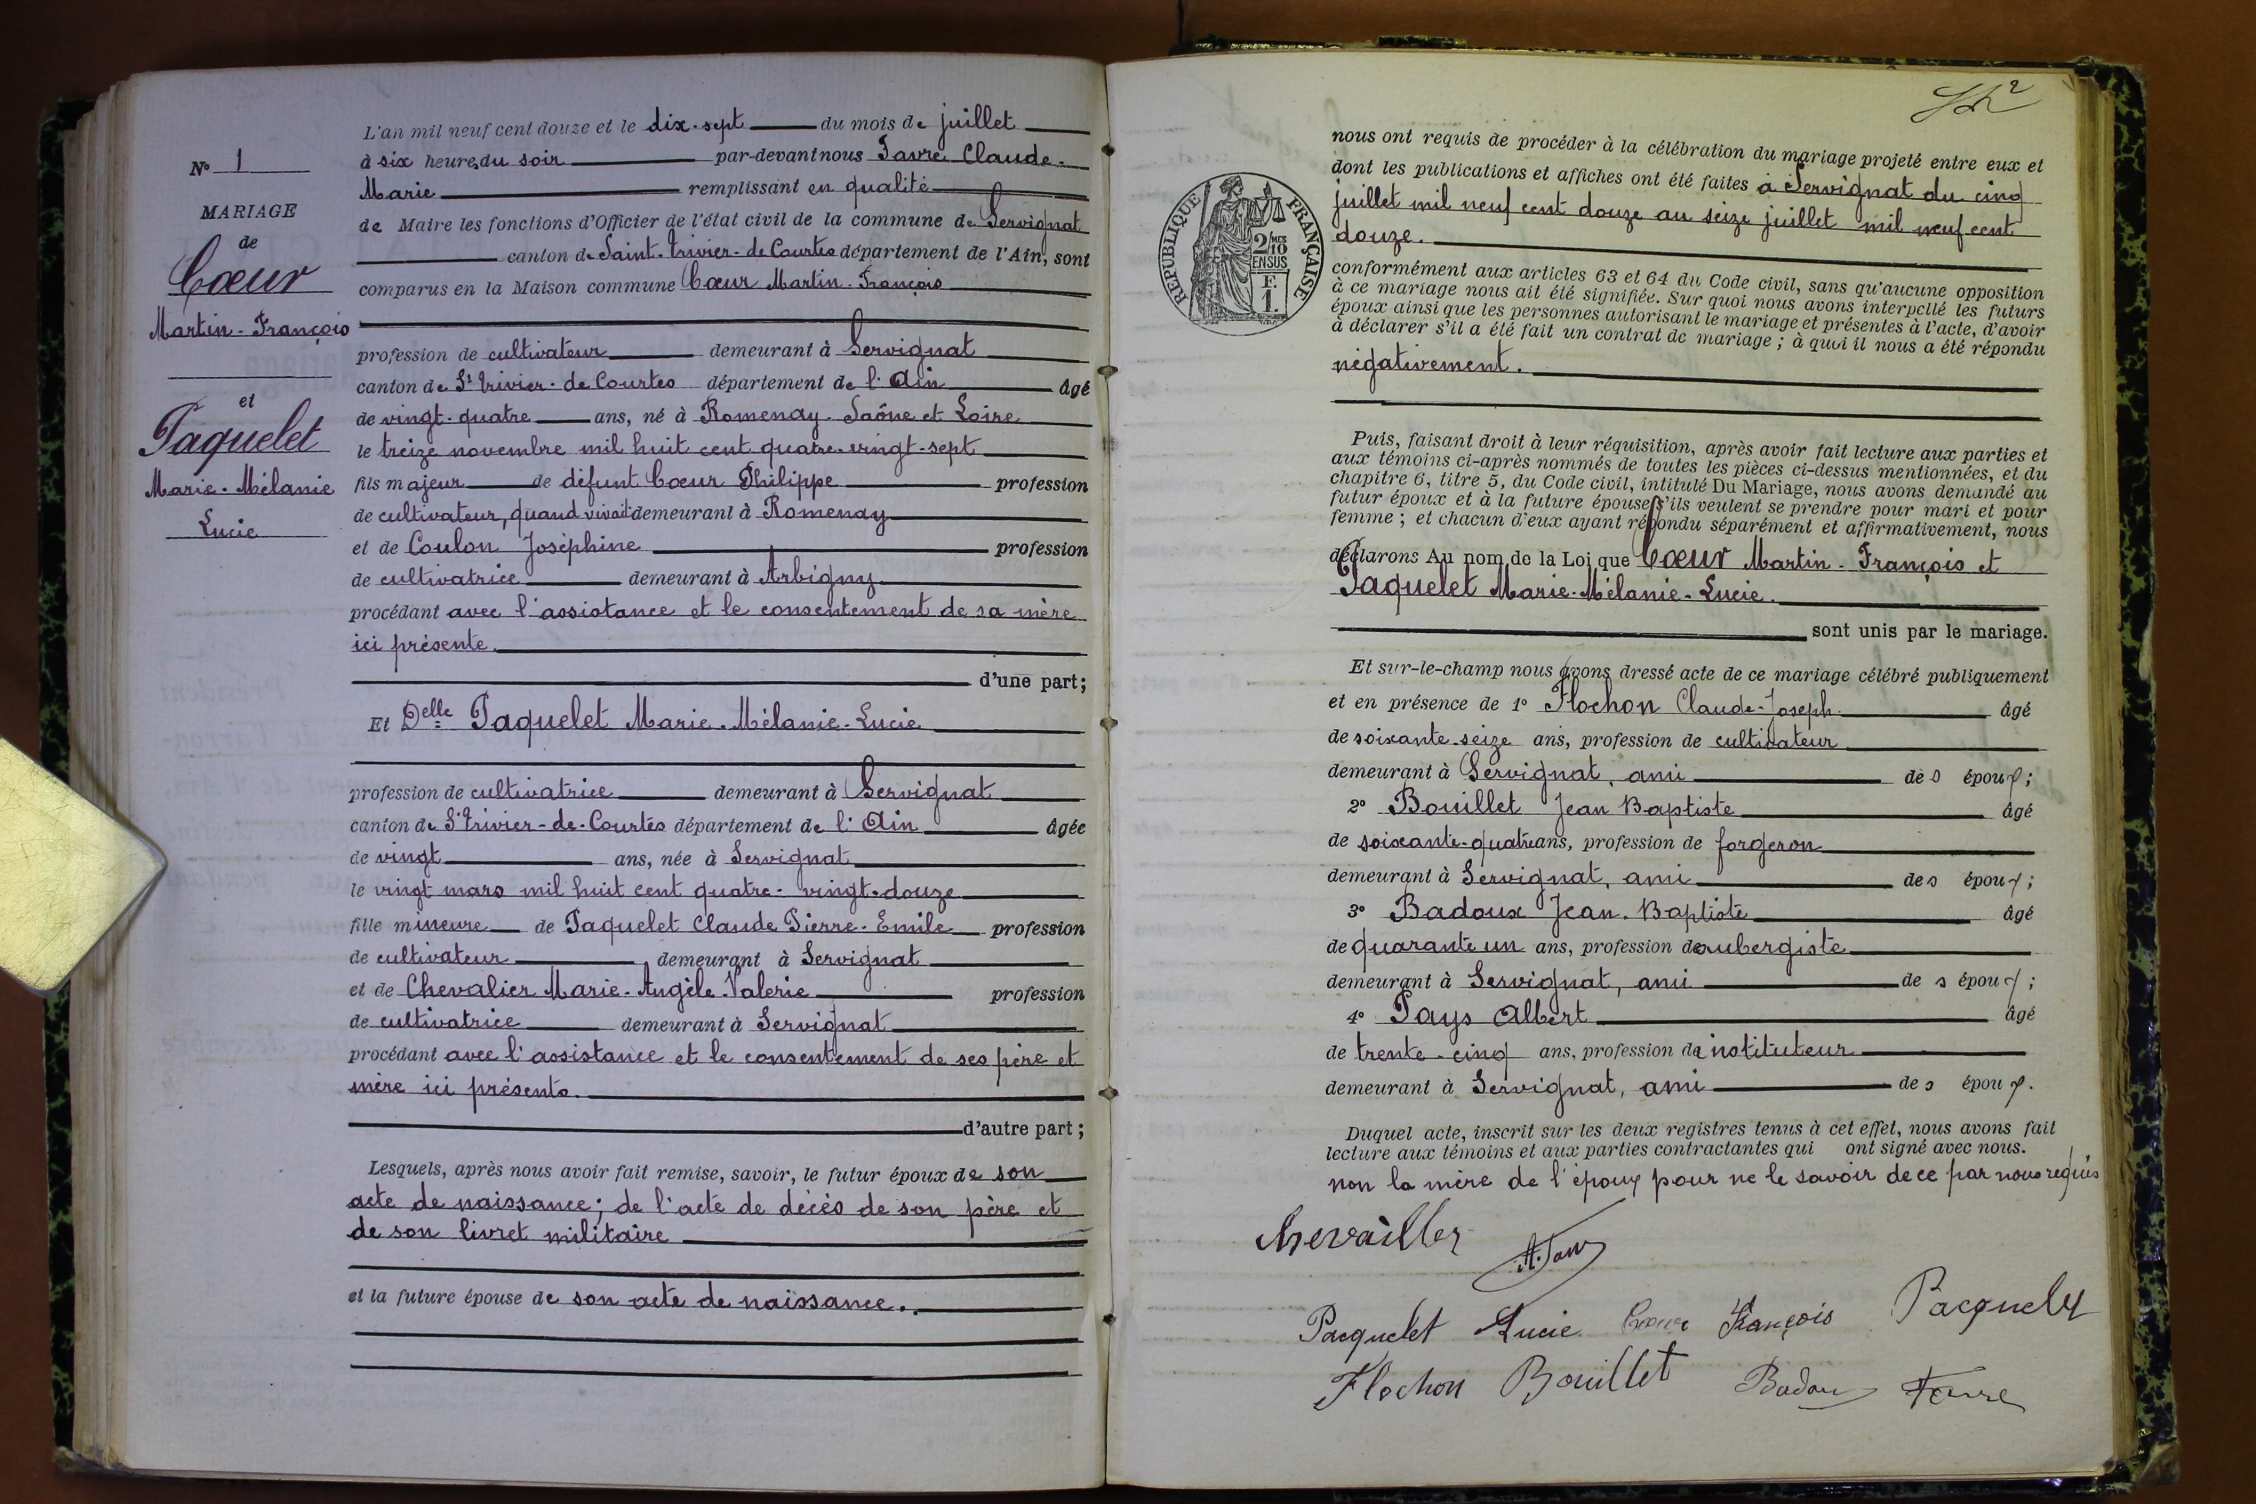 N° 1
MARIAGE
de
Cœur
Martin-François
et
Paquelet
Marie-Mélanie
Lucie
L'an mil neuf cent douze et le dix-sept du mois de juillet
à six heures du soir par-devant nous Favre Claude-
Marie remplissant en qualité
de Maire les fonctions d'Officier de l'état civil de la commune de Servignat
canton de Saint-Trivier-de-Courtes département de l'Ain, sont
comparus en la Maison commune Cœur Martin-François
profession de cultivateur demeurant à Servignat
canton de St Trivier-de-Courtes département de l'Ain âgé
de vingt-quatre ans, né à Romenay-Saône et Loire
le treize novembre mil huit cent quatre-vingt-sept
fils majeur de défunt Cœur Philippe profession
de cultivateur, quand vivait demeurant à Romenay
et de Coulon Joséphine profession
de cultivatrice demeurant à Arbigny
procédant avec l'assistance et le consentement de sa mère
ici présente.
d'une part;
Et Delle Paquelet Marie-Mélanie-Lucie
profession de cultivatrice demeurant à Servignat
canton de St Trivier-de-Courtes département de l'Ain âgée
de vingt ans, née à Servignat
le vingt mars mil huit cent quatre-vingt-douze
fille mineure de Paquelet Claude Pierre-Emile profession
de cultivateur demeurant à Servignat
et de Chevalier Marie-Angèle-Valerie profession
de cultivatrice demeurant à Servignat
procédant avec l'assistance et le consentement de ses père et
mère ici présents.
d'autre part;
Lesquels, après nous avoir fait remise, savoir, le futur époux de son
acte de naissance; de l'acte de décès de son père et
de son livret militaire
et la future épouse de son acte de naissance.
2
nous ont requis de procéder à la célébration du mariage projeté entre eux et
dont les publications et affiches ont été faites à Servignat du cinq
juillet mil neuf cent douze au seize juillet mil neuf cent
douze.
RÉPUBLIQUE FRANÇAISE
2/10
EN SUS
F.
1.
conformément aux articles 63 et 64 du Code civil, sans qu'aucune opposition
à ce mariage nous ait été signifiée. Sur quoi nous avons interpellé les futurs
époux ainsi que les personnes autorisant le mariage et présentes à l'acte, d'avoir
à déclarer s'il a été fait un contrat de mariage; à quoi il nous a été répondu
négativement.
Puis, faisant droit à leur réquisition, après avoir fait lecture aux parties et
aux témoins ci-après nommés de toutes les pièces ci-dessus mentionnées, et du
chapitre 6, titre 5, du Code civil, intitulé Du Mariage, nous avons demandé au
futur époux et à la future épouse s'ils veulent se prendre pour mari et pour
femme; et chacun d'eux ayant répondu séparément et affirmativement, nous
déclarons Au nom de la Loi que Cœur Martin-François et
Paquelet Marie-Mélanie-Lucie.
sont unis par le mariage.
Et sur-le-champ nous avons dressé acte de ce mariage célébré publiquement
et en présence de 1° Flochon Claude-Joseph âgé
de soixante-seize ans, profession de cultivateur
demeurant à Servignat, ami des époux;
2° Bouillet Jean Baptiste âgé
de soixante-quatre ans, profession de forgeron
demeurant à Servignat, ami des époux;
3° Badoux Jean-Baptiste âgé
de quarante un ans, profession de aubergiste
demeurant à Servignat, ami des époux;
4° Pays Albert âgé
de trente-cinq ans, profession de instituteur
demeurant à Servignat, ami des époux.
Duquel acte, inscrit sur les deux registres tenus à cet effet, nous avons fait
lecture aux témoins et aux parties contractantes qui ont signé avec nous.
non la mère de l'époux pour ne le savoir de ce par nous requis
Chevallier
Pacquelet Lucie Cœur François Pacquelet
Flochon Bouillet Badoux Favre